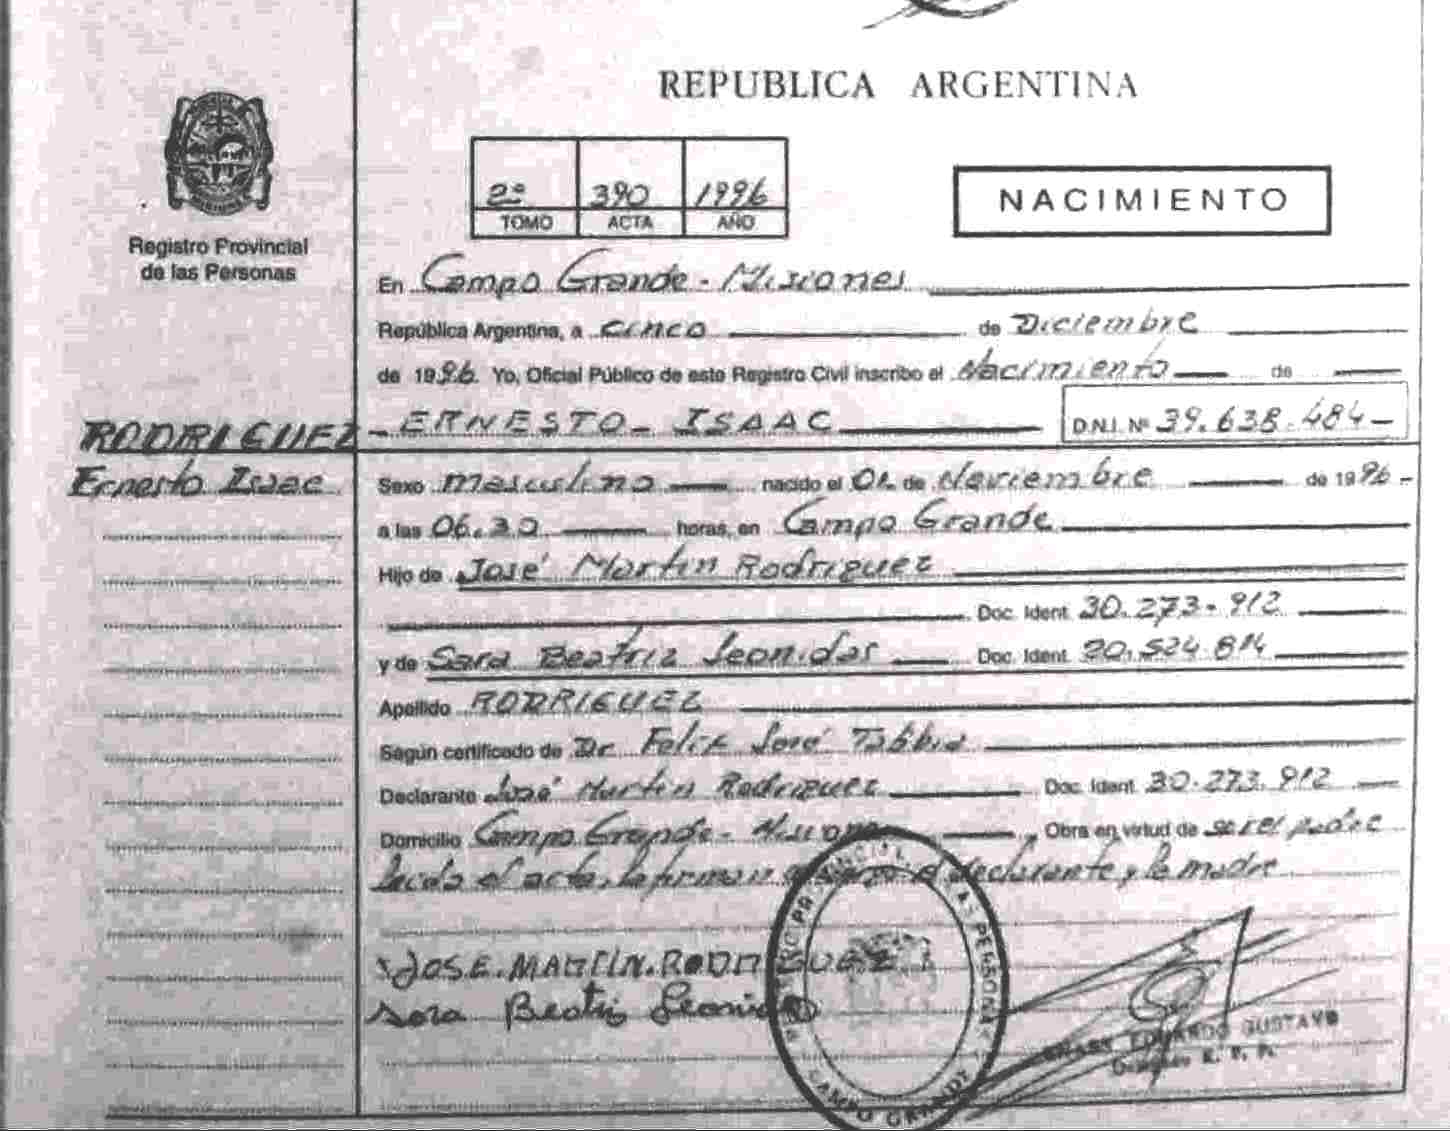 REPUBLICA ARGENTINA
2º 390 1996
TOMO ACTA AÑO
NACIMIENTO
Registro Provincial
de las Personas
En Campo Grande - Misiones
República Argentina, a cinco de Diciembre
de 1996. Yo, Oficial Público de este Registro Civil inscribo el Nacimiento de
RODRIGUEZ - ERNESTO - ISAAC D.N.I. Nº 39.638.484-
Ernesto Isaac
Sexo masculino nacido el 01 de Noviembre de 1996-
a las 06.30 horas, en Campo Grande
Hijo de José Martin Rodriguez
Doc. Ident. 30.273.912
y de Sara Beatriz Leonidas Doc. Ident. 20.524.814
Apellido RODRIGUEZ
Según certificado de Dr. Felix José
Declarante José Martin Rodriguez Doc. Ident. 30.273.912
Domicilio Campo Grande - Misiones, Obra en virtud de ser el padre
Leida el acta, la firman el declarante y la madre
JOSE. MARTÍN. RODRIGUEZ
Sara Beatriz Leonidas
CAMPO GRANDE
EDUARDO GUSTAVO
R. P. P.